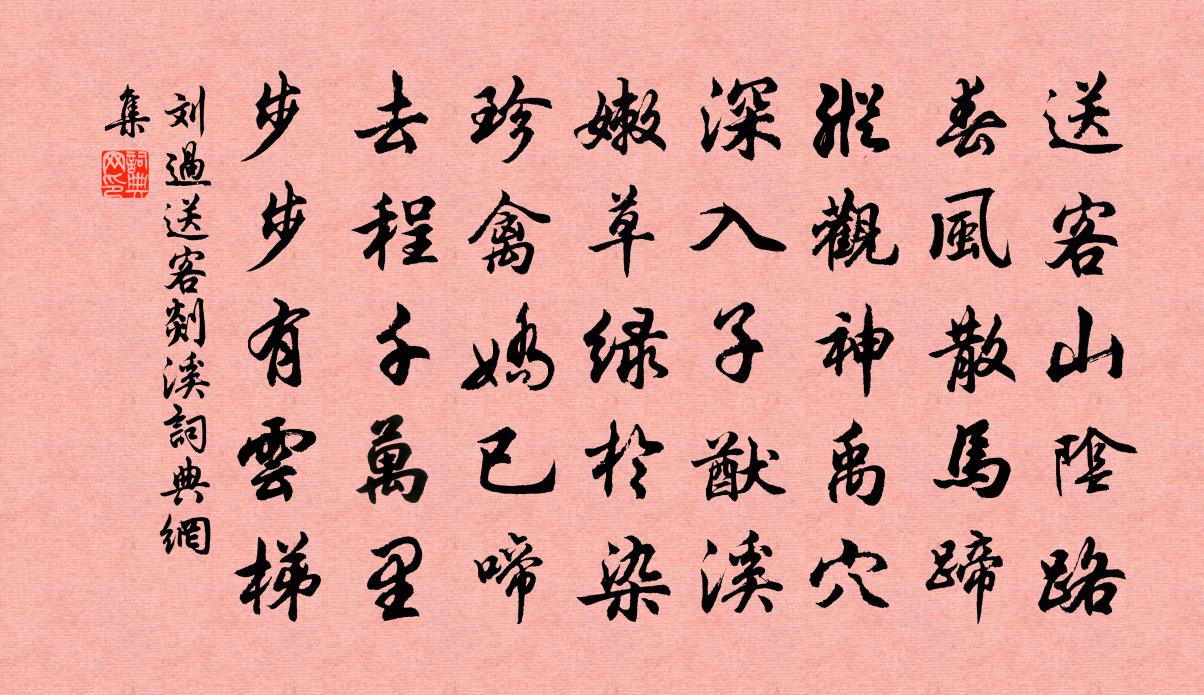 送客山陰路
春風散馬蹄
縱觀神禹穴
深入子猷溪
嫩草綠於染
珍禽嬌已啼
去程千萬里
步步有雲梯
刘過送客剡溪詞典網
集
詞典
网印